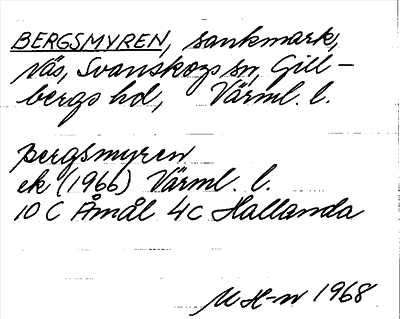 BERGSMYREN, sankmark,
Näs, Svanskogs sn, Gill-
bergs hd, Värml. l.
bergsmyren
ek (1966) Värml. l.
10 C Åmål 4c Hallanda
M H-n 1968